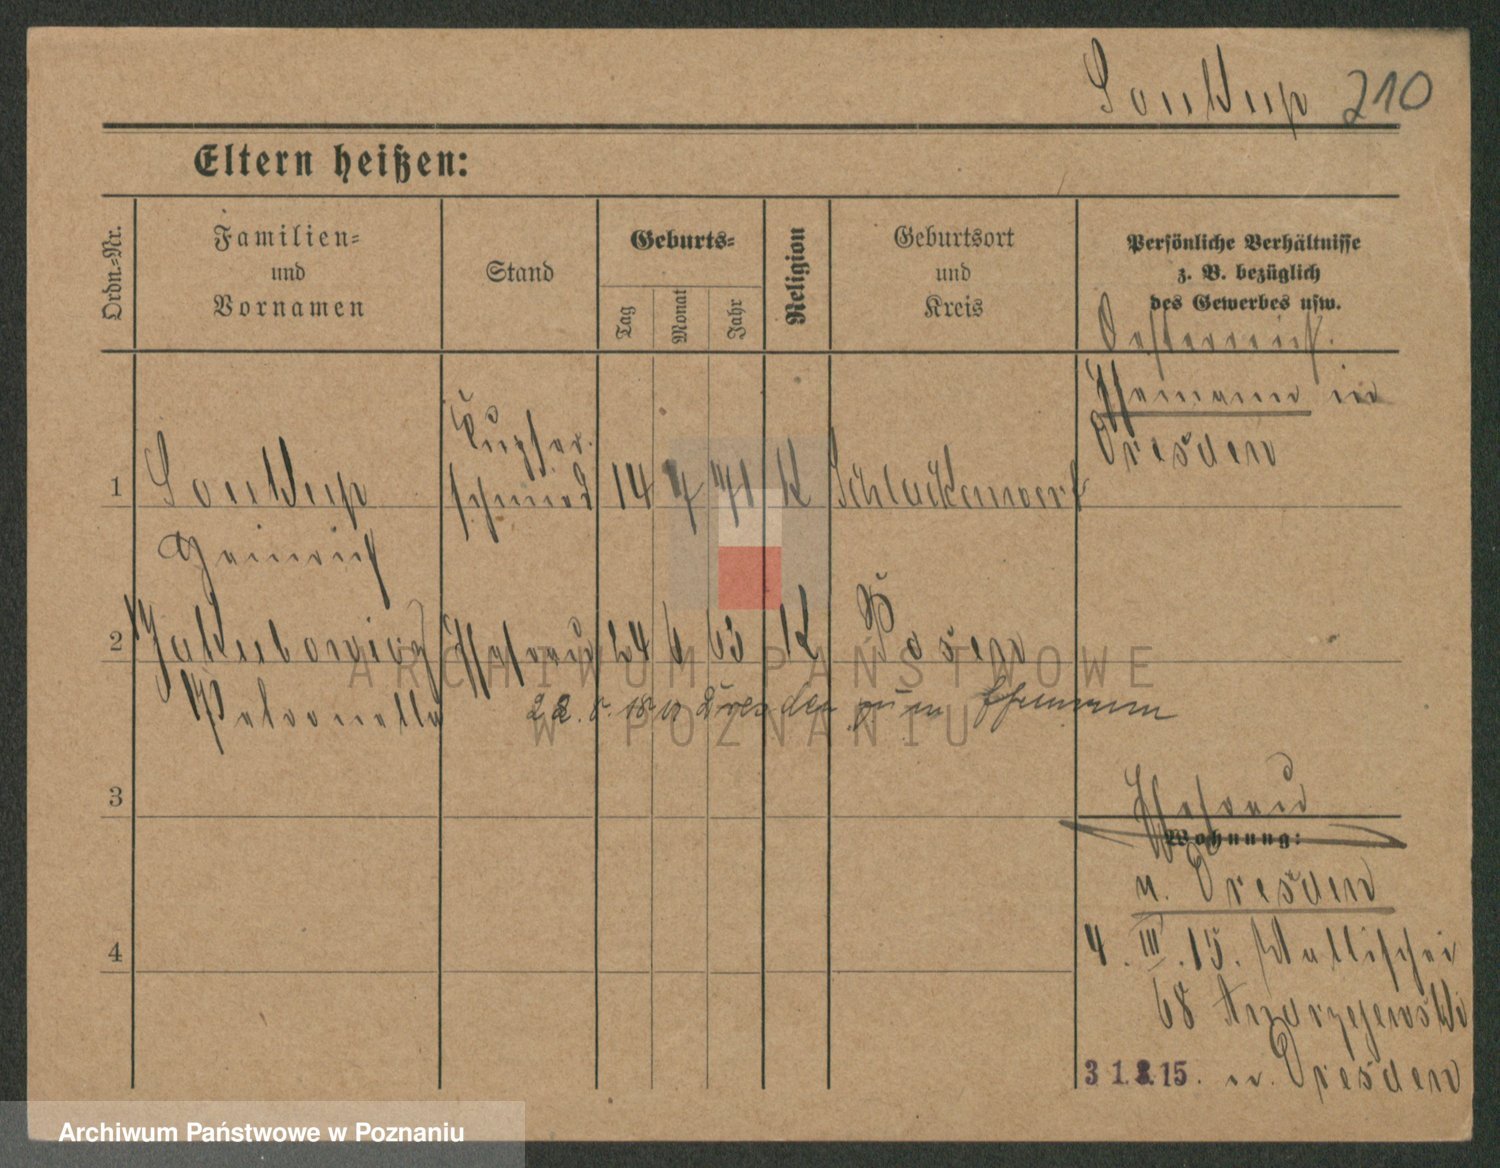 Soukup 210
Eltern heißen:
Ordn.-Nr.
Familien-
und
Vornamen
Stand
Geburts-
Tag
Monat
Jahr
Religion
Geburtsort
und
Kreis
Persönliche Verhältnisse
z. B. bezüglich
des Gewerbes usw.
Oesterreich.
Ehemann in
Dresden
Kupfer-
1 Soukup schmied 14 7 71 K Schluckenwerk
Heinrich
2 Jakubowicz Ehefrau 24 6 63 K Posen
Petronella
22. 5. Dresden zum Ehemann
3
Ehefrau
Wohnung:
n. Dresden
4
4. III. 15. Wallischei
68 Andrzejewski
31.3.15. n. Dresden
ARCHIWUM PAŃSTWOWE
W POZNANIU
Archiwum Państwowe w Poznaniu